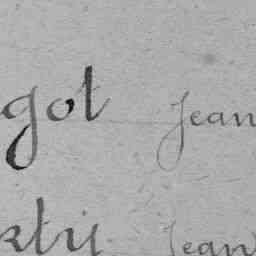 got Jean
kty Jean